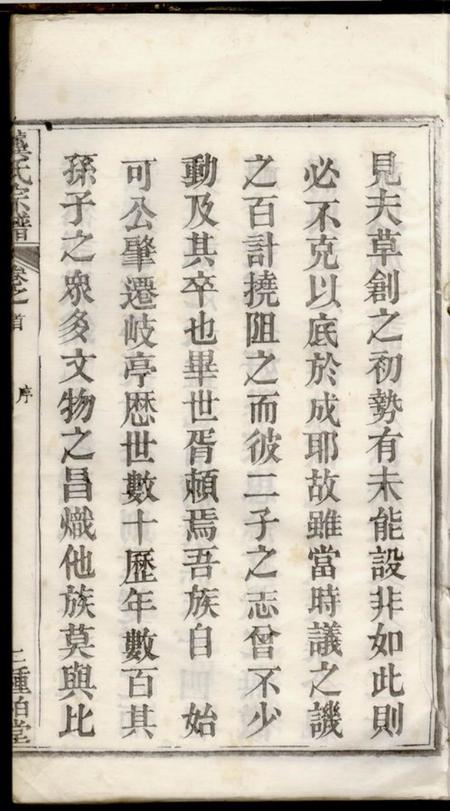 見夫草創之初勢有未能設非如此則
必不克以底於成耶故雖當時議之譏
之百計撓阻之而彼二子之志曾不少
動及其卒也畢世胥頼焉吾族自 始
可公肇遷岐亭厯世數十歷年數百其
孫子之衆多文物之昌熾他族莫與比
氏宗譜 卷之首 序 三種柏堂